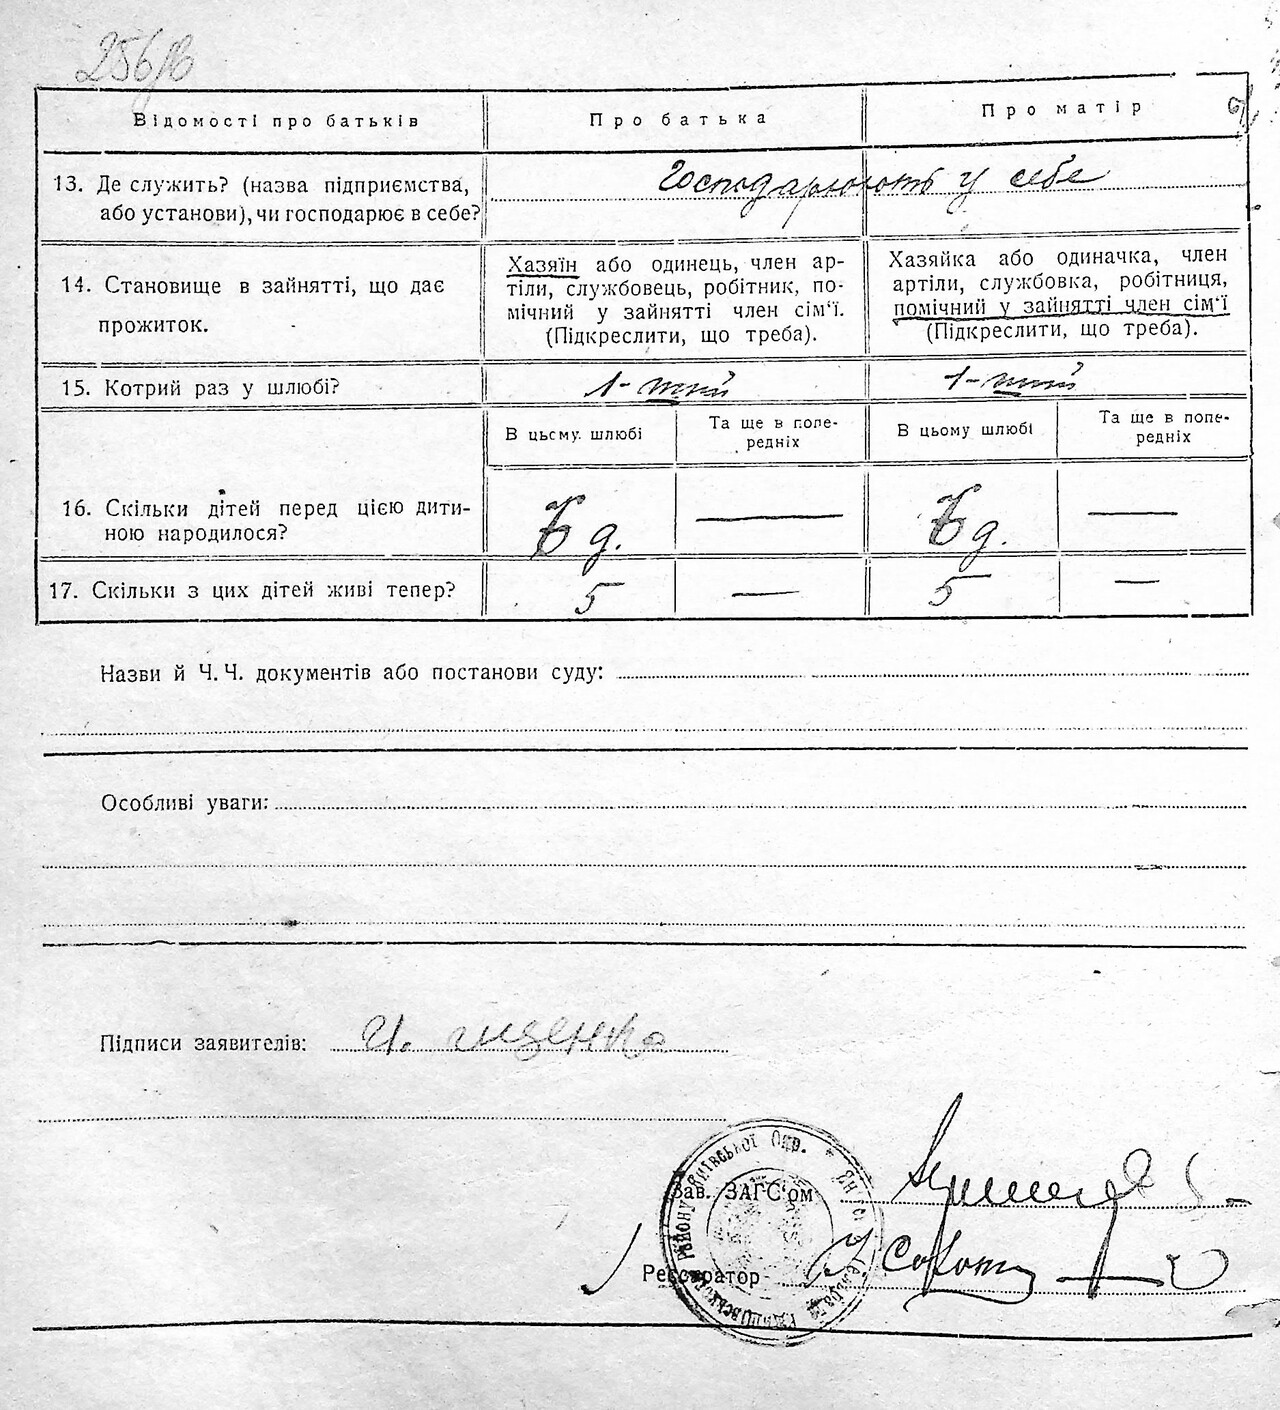 Відомості про батьків
Про батька
Про матір
13. Де служить? (назва підприємства,
або установи), чи господарює в себе?
Господарюють у себе
14. Становище в зайнятті, що дає
прожиток.
Хазяїн або одинець, член ар-
тіли, службовець, робітник, по-
мічний у зайнятті член сім'ї.
(Підкреслити, що треба).
Хазяйка або одиначка, член
артіли, службовка, робітниця,
помічний у зайнятті член сім'ї
(Підкреслити, що треба).
15. Котрий раз у шлюбі?
1-ший
1-ший
16. Скільки дітей перед цією дити-
ною народилося?
В цьому шлюбі
Та ще в попе-
редніх
В цьому шлюбі
Та ще в попе-
редніх
д.
—
д.
—
17. Скільки з цих дітей живі тепер?
5
—
5
—
Назви й Ч. Ч. документів або постанови суду:
Особливі уваги:
Підписи заявителів:
Зав. ЗАГС'ом
Реєстратор